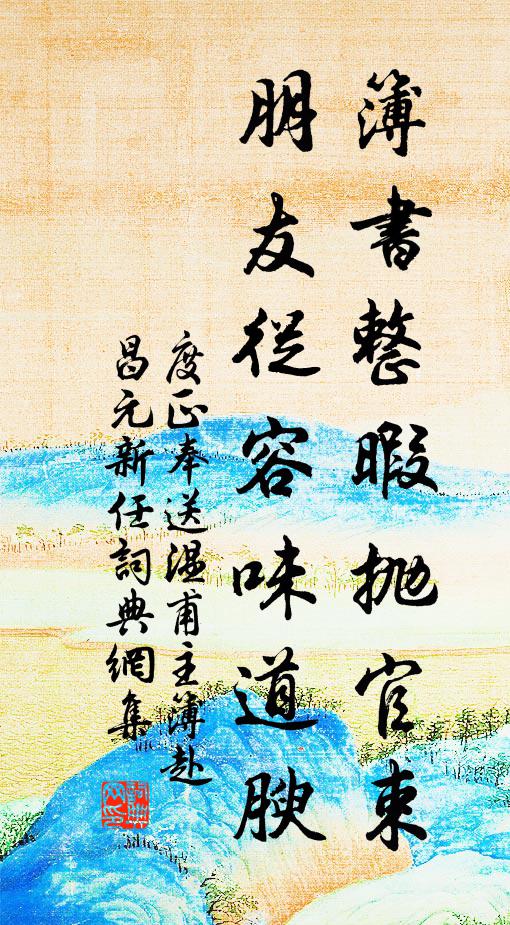 簿書整暇抛官束
朋友從容味道腴
度正奉送温甫主簿赴
昌元新任詞典網集